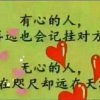 有心的人，
远也会记挂对方
无心的人，
在咫尺却远在天